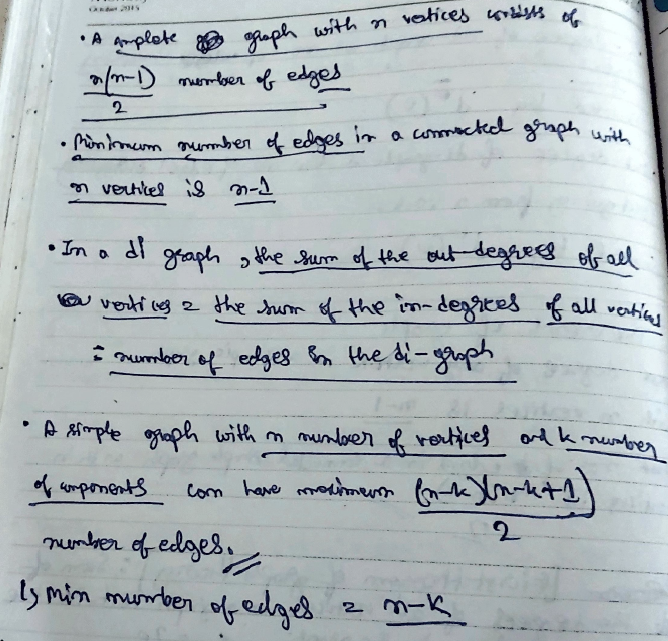 October 2015
• A complete graph with n vertices consists of
n(n-1)/2 number of edges
• Minimum number of edges in a connected graph with
n vertices is n-1
• In a di graph, the sum of the out-degrees of all
vertices = the sum of the in-degrees of all vertices
= number of edges in the di-graph
• A simple graph with n number of vertices and k number
of components can have maximum (n-k)(n-k+1)/2
number of edges.
↳ Min number of edges = n-k